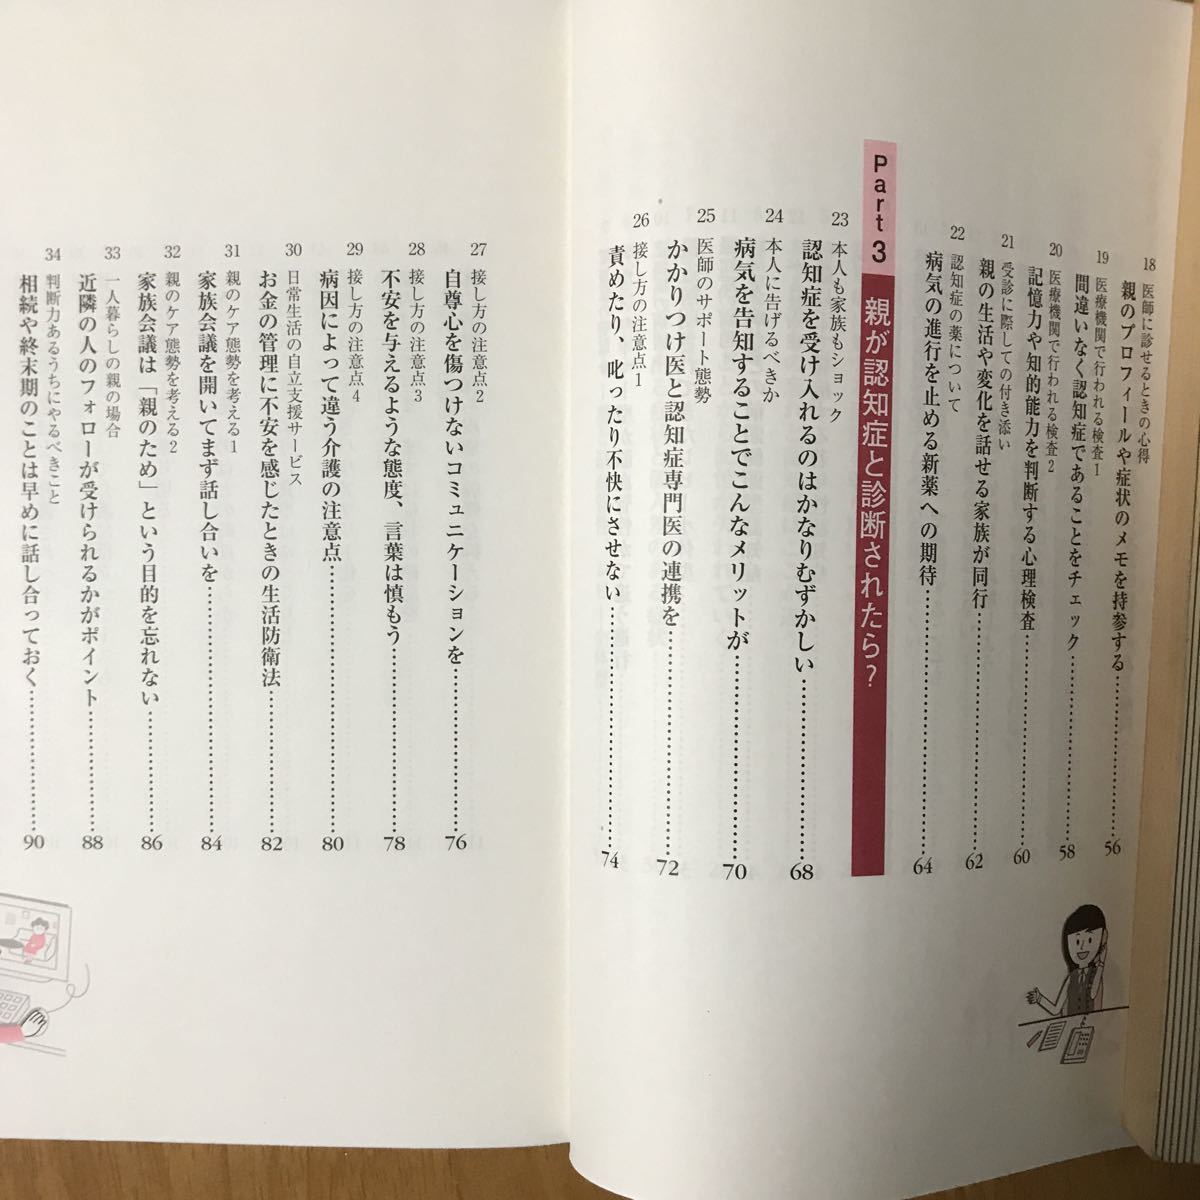 18 医師に診せるときの心得
親のプロフィールや症状のメモを持参する……56
19 医療機関で行われる検査1
間違いなく認知症であることをチェック……58
20 医療機関で行われる検査2
記憶力や知的能力を判断する心理検査……60
21 受診に際しての付き添い
親の生活や変化を話せる家族が同行……62
22 認知症の薬について
病気の進行を止める新薬への期待……64
Part 3 親が認知症と診断されたら?
23 本人も家族もショック
認知症を受け入れるのはかなりむずかしい……68
24 本人に告げるべきか
病気を告知することでこんなメリットが……70
25 医師のサポート態勢
かかりつけ医と認知症専門医の連携を……72
26 接し方の注意点1
責めたり、叱ったり不快にさせない……74
27 接し方の注意点2
自尊心を傷つけないコミュニケーションを……76
28 接し方の注意点3
不安を与えるような態度、言葉は慎もう……78
29 接し方の注意点4
病因によって違う介護の注意点……80
30 日常生活の自立支援サービス
お金の管理に不安を感じたときの生活防衛法……82
31 親のケア態勢を考える1
家族会議を開いてまず話し合いを……84
32 親のケア態勢を考える2
家族会議は「親のため」という目的を忘れない……86
33 一人暮らしの親の場合
近隣の人のフォローが受けられるかがポイント……88
34 判断力あるうちにやるべきこと
相続や終末期のことは早めに話し合っておく……90